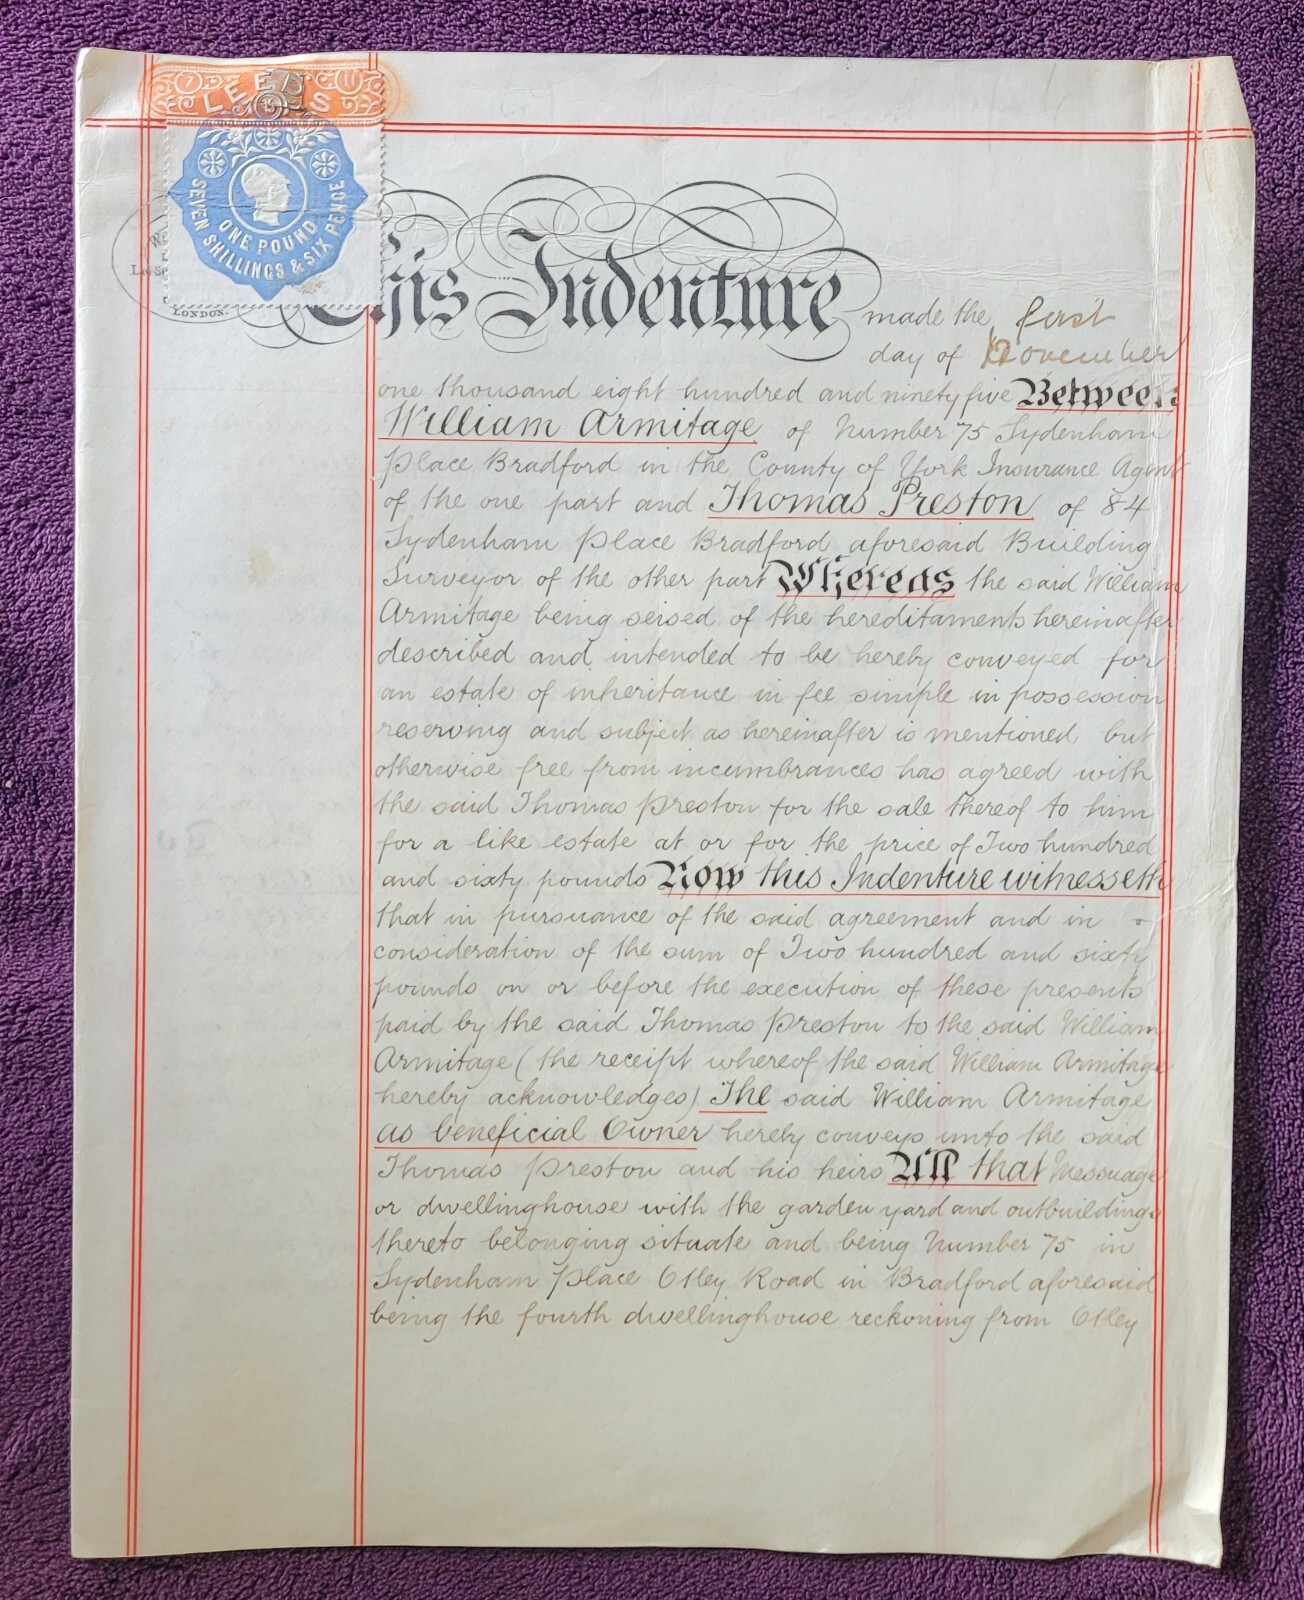 7 LEEDS 11
95
SEVEN SHILLINGS & SIX PENCE
ONE POUND
LONDON.
This Indenture made the first
day of November
one thousand eight hundred and ninety five Between
William Armitage of Number 75 Sydenham
Place Bradford in the County of York Insurance Agent
of the one part and Thomas Preston of 84
Sydenham Place Bradford aforesaid Building
Surveyor of the other part Whereas the said William
Armitage being seised of the hereditaments hereinafter
described and intended to be hereby conveyed for
an estate of inheritance in fee simple in possession
reserving and subject as hereinafter is mentioned but
otherwise free from incumbrances has agreed with
the said Thomas Preston for the sale thereof to him
for a like estate at or for the price of Two hundred
and sixty pounds Now this Indenture witnesseth
that in pursuance of the said agreement and in -
consideration of the sum of Two hundred and sixty
pounds on or before the execution of these presents
paid by the said Thomas Preston to the said William
Armitage (the receipt whereof the said William Armitage
hereby acknowledges) The said William Armitage
as beneficial Owner hereby conveys unto the said
Thomas Preston and his heirs All that Messuage
or dwellinghouse with the garden yard and outbuildings
thereto belonging situate and being Number 75 in
Sydenham Place Otley Road in Bradford aforesaid
being the fourth dwellinghouse reckoning from Otley